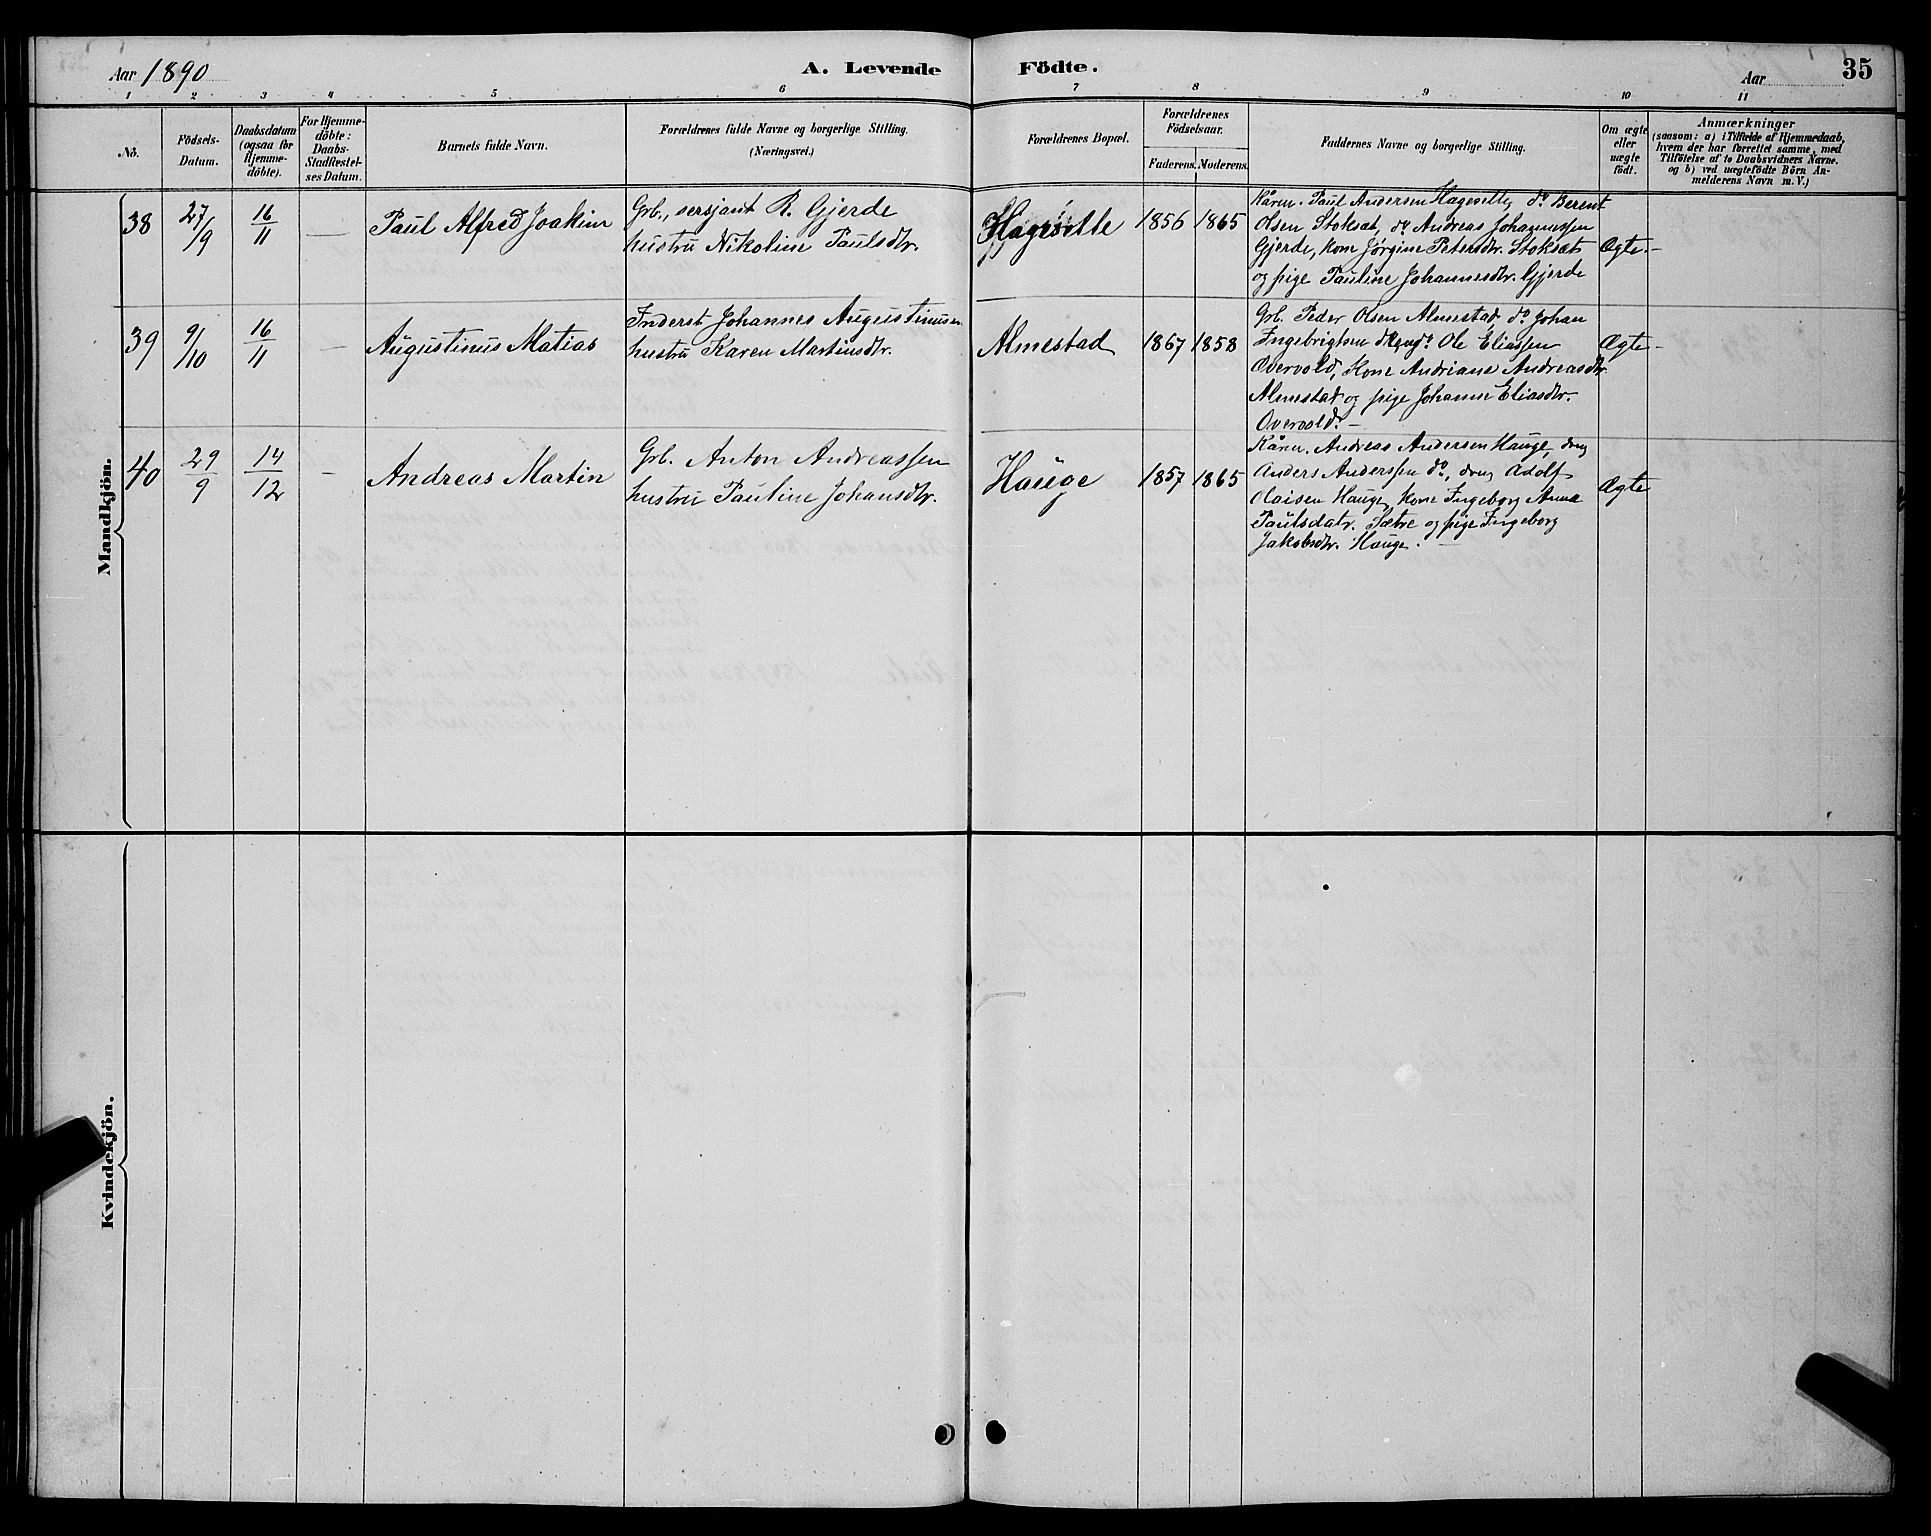 Aar 1890
A. Levende Födte.
Aar
35
1 2 3 4 5 6 7 8 9 10 11
No.
Födsels-Datum.
Daabsdatum (ogsaa for Hjemme-döbte).
For Hjemme-döbte: Daabs-Stadfæstel-ses Datum.
Barnets fulde Navn.
Forældrenes fulde Navne og borgerlige Stilling.
(Næringsvei.)
Forældrenes Bopæl.
Forældrenes Födselsaar.
Faderens. Moderens.
Faddernes Navne og borgerlige Stilling.
Om ægte eller uægte födt.
Anmærkninger
(saasom: a) i Tilfælde af Hjemmedaab,
hvem der har forrettet samme, med
Tilföielse af to Daabsvidners Navne.
og b) ved uægtefödte Börn An-
melderens Navn m. V.)
Mandkjön.
38 27/9 16/11 — Paul Alfred Joakim
Grb., sersjant R. Gjerde
hustru Nikoline Paulsdtr.
Hagesætte 1856 1865
Kårm. Paul Andersen Hagesætte, do Berent
Olsen Stoksæt, do Andreas Johannessen
Gjerde, kone Jørgine Petersdtr. Stoksæt
og pige Pauline Johannesdtr. Gjerde
Ægte. —
39 9/10 16/11 — Augustinus Matias
Inderst Johannes Augustinusen
hustru Karen Martinsdtr.
Almestad 1867 1858
Grb. Peder Olsen Almestad, do Johan
Ingebrigtsen do, do Ole Eliassen
Overvold, Kone Andriane Andreasdtr.
Almestad og pige Johanne Eliasdtr.
Overvold. —
Ægte —
40 29/9 14/12 — Andreas Martin
Grb. Anton Andreassen
hustru Pauline Johansdtr.
Hauge 1857 1865
Kårm. Andreas Andersen Hauge, dreng
Anders Anderssen do, dreng Adolf
Olaisen Hauge, kone Ingeborg Anna
Paulsdatr. Sætre og pige Ingeborg
Jakobsdtr. Hauge. —
Ægte
Kvindekjön.